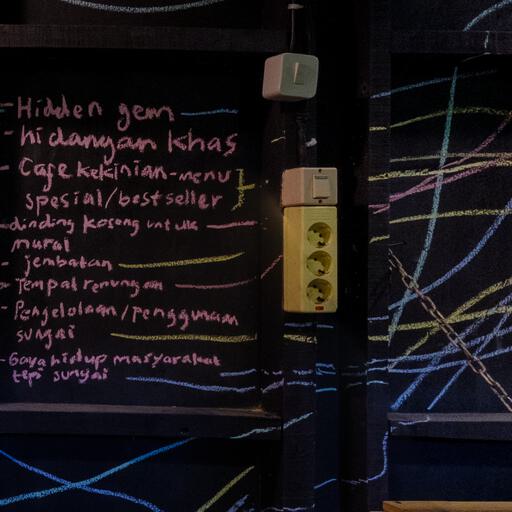 - Hidden gem
- hidangan khas
- Cafe kekinian - menu
spesial/best seller
- dinding kosong untuk
mural
- jembatan
- Tempat renungan
- Pengelolaan/penggunaan
sungai
- Gaya hidup masyarakat
tepi sungai